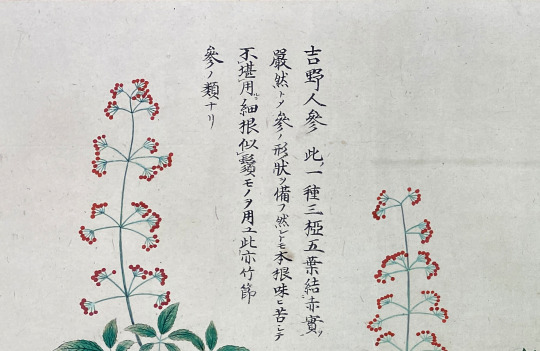 吉野人參 此ノ一種三椏五葉結赤實ヲ
嚴然トノ參ノ形狀ヲ備フ然レトモ本根味ヒ苦シテ
不堪用細根似鬚モノヲ用ユ此亦竹節
參ノ類ナリ